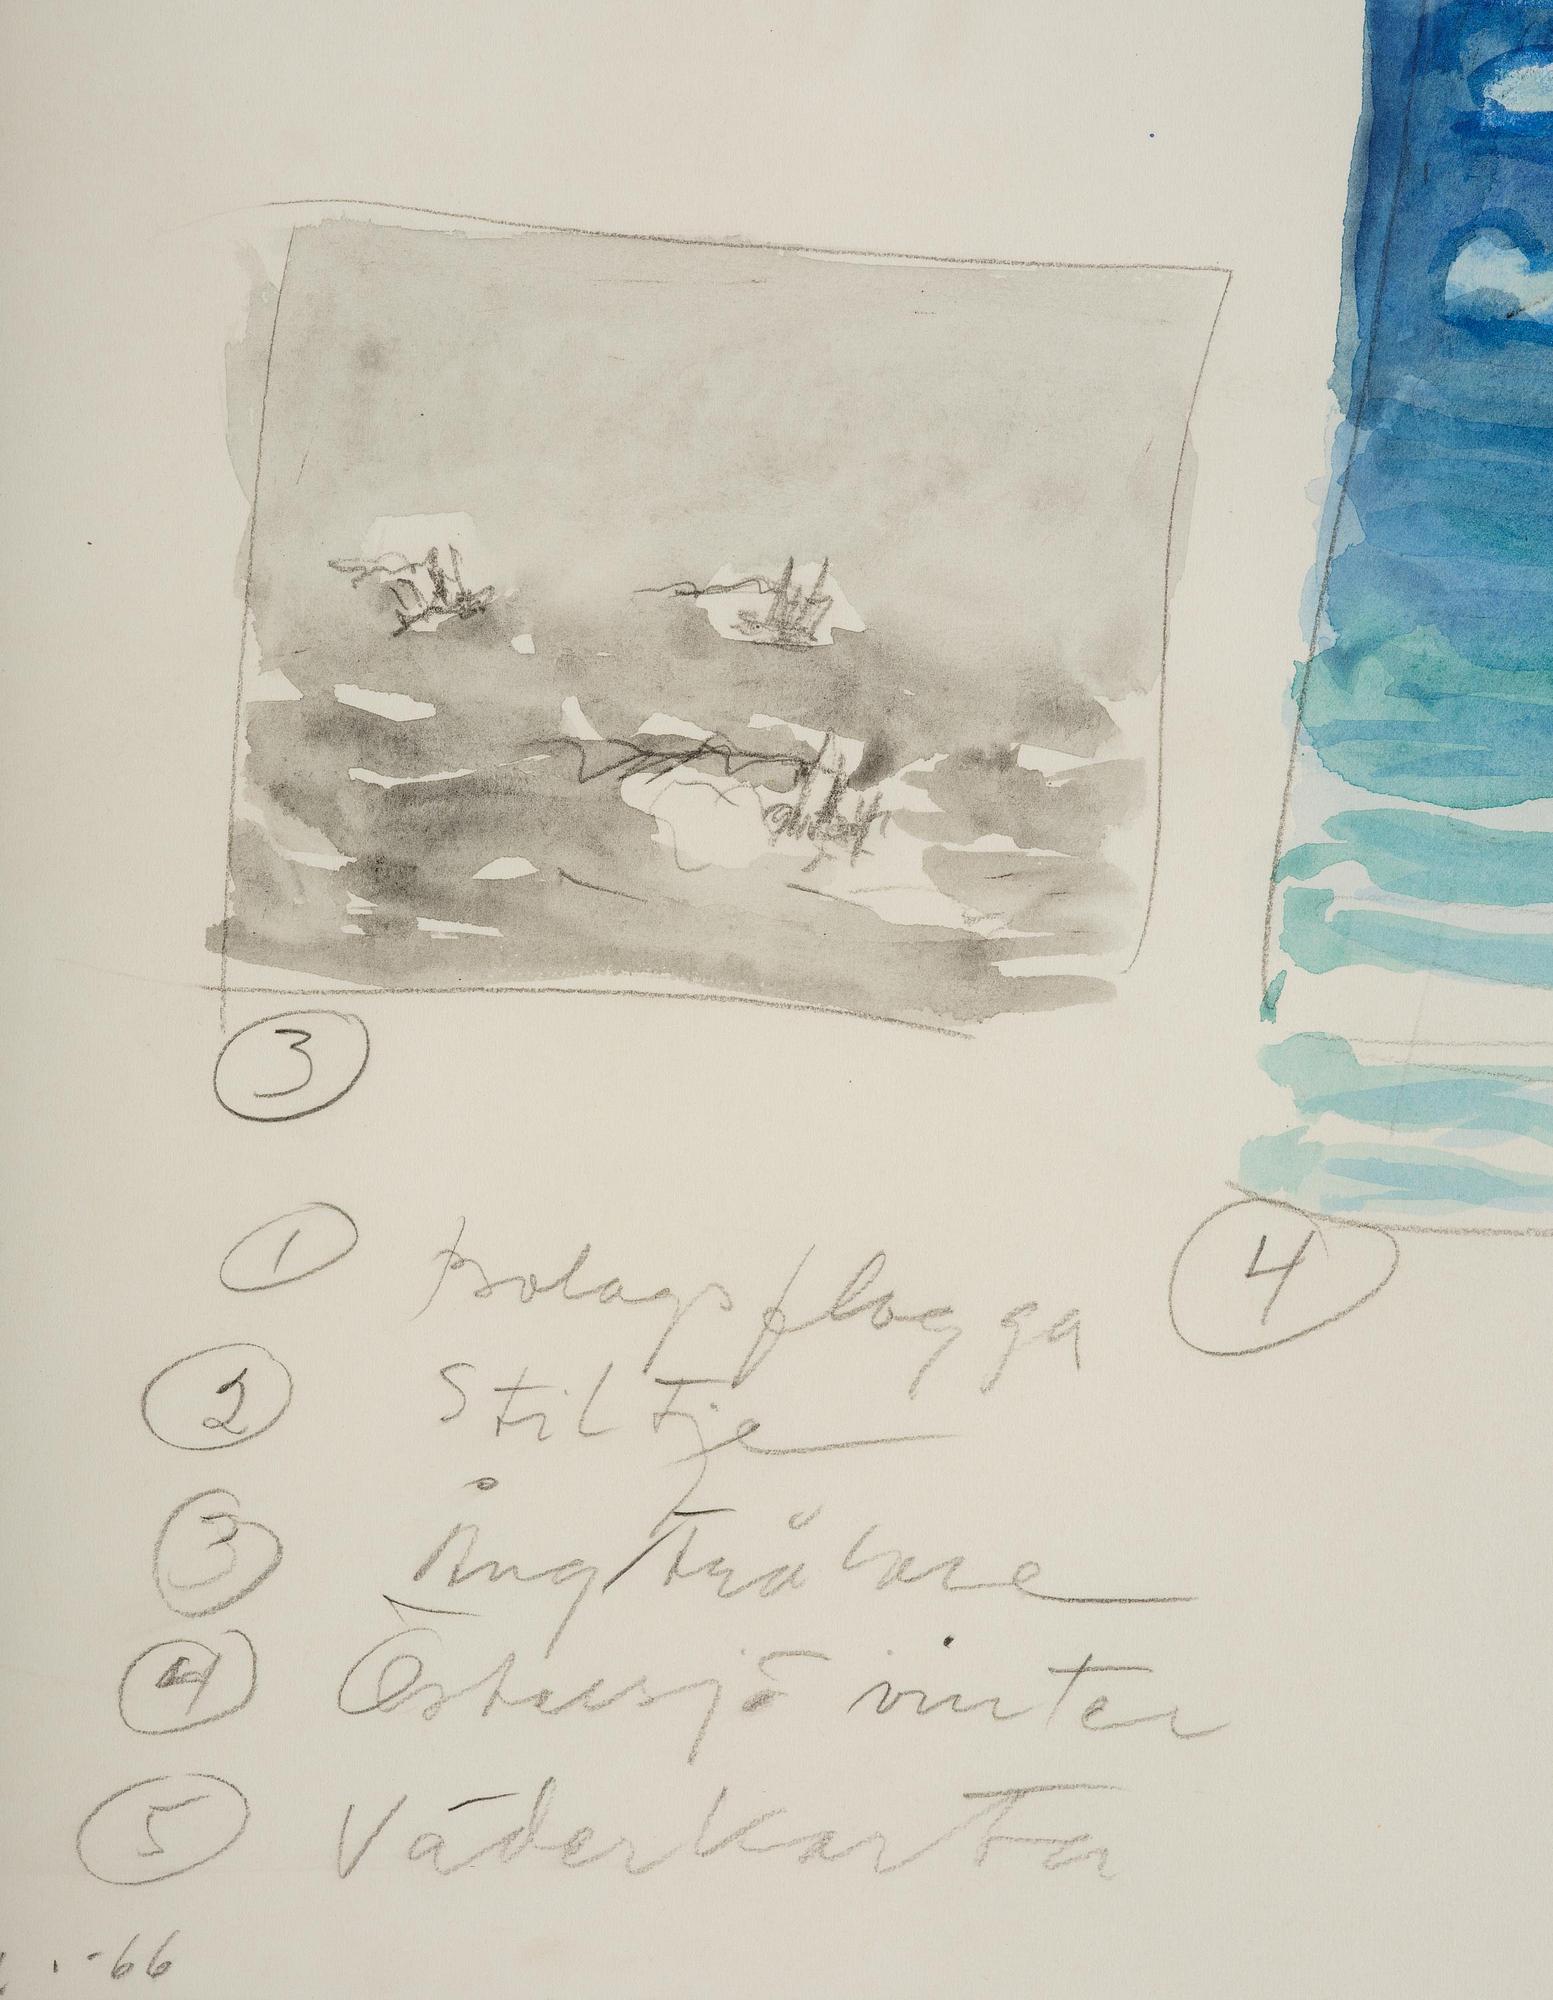 3
4
1 bolagsflagga
2 Stiltje
3 Ångtrålare
4 Östersjö vinter
5 Väderkarta
-66